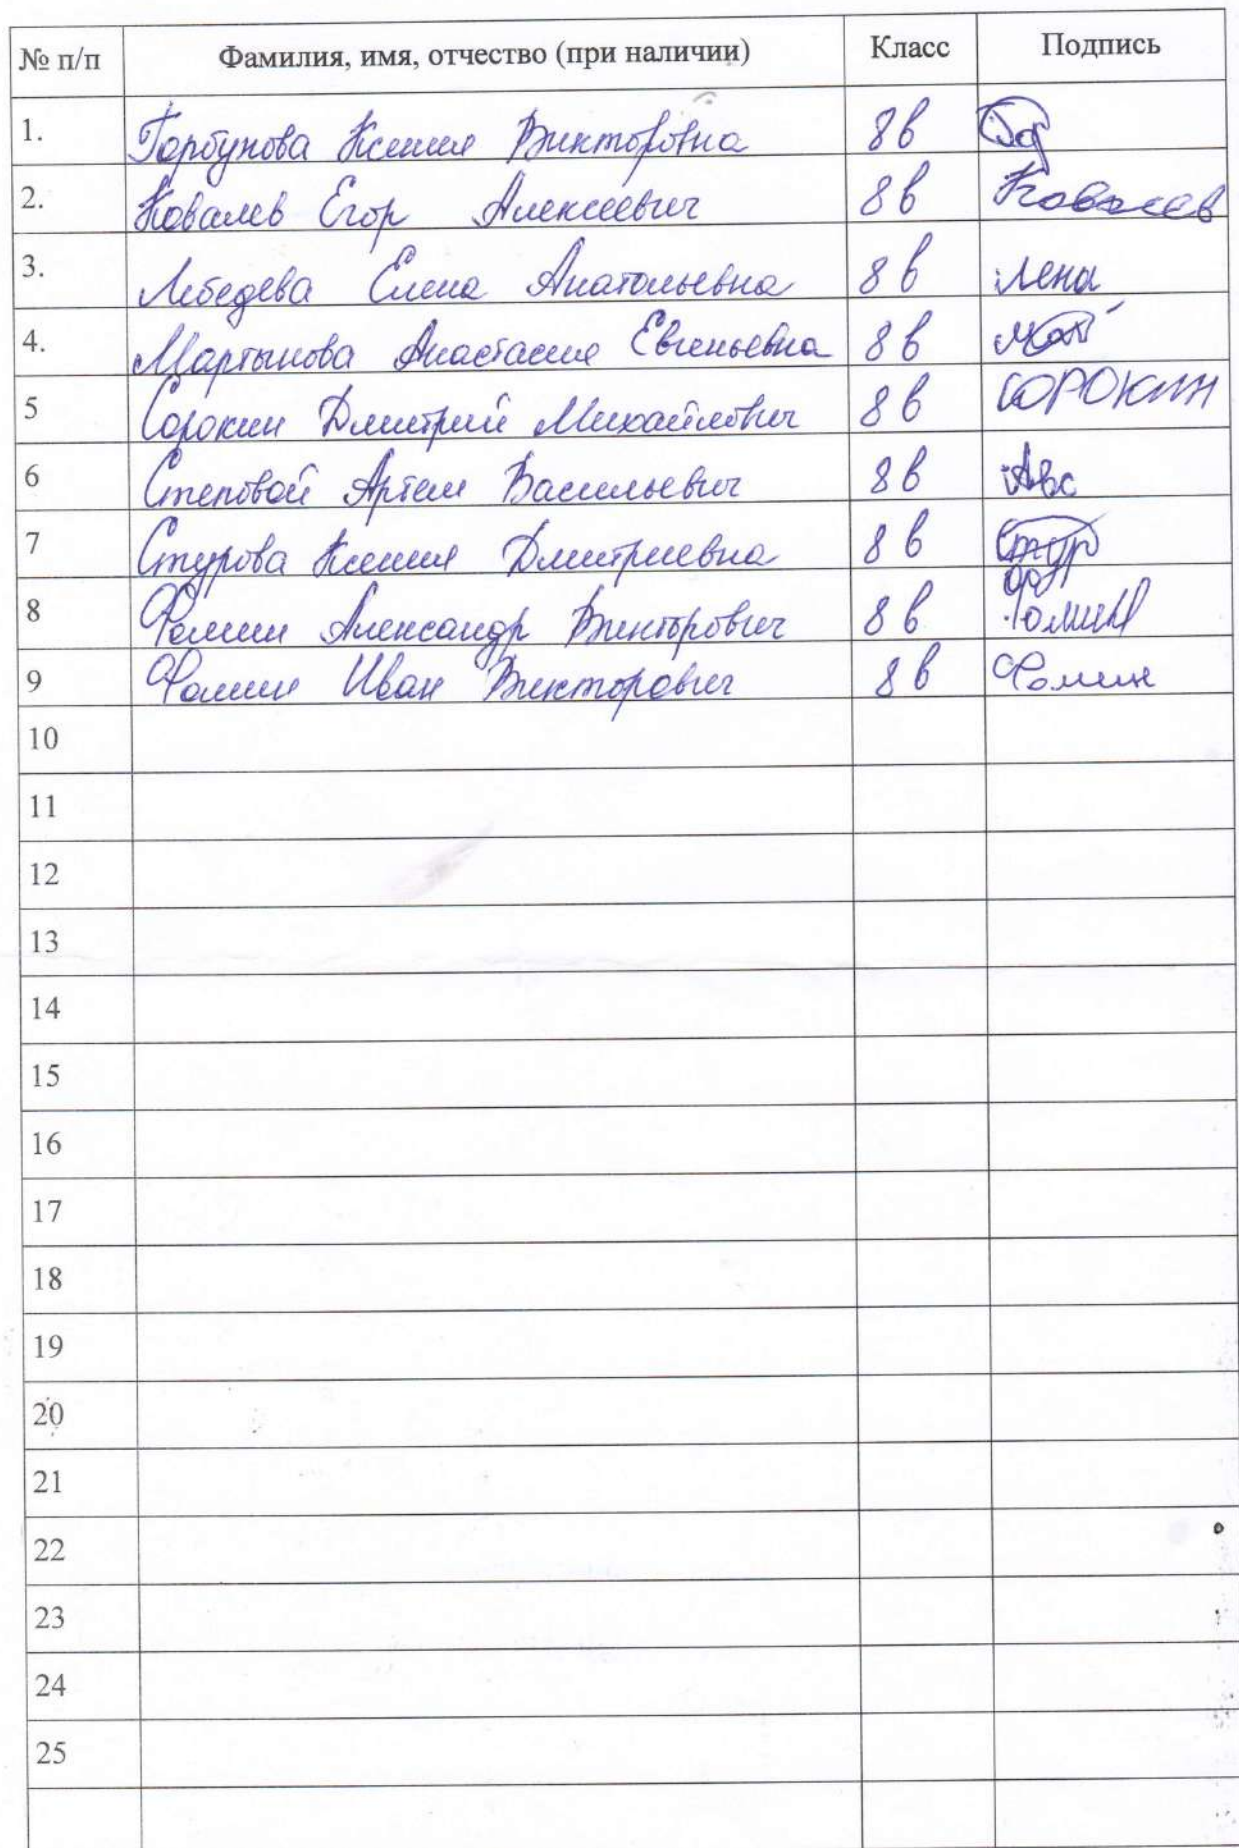 № п/п Фамилия, имя, отчество (при наличии) Класс Подпись
1. Горбунова Ксения Викторовна 8в
2. Ковалев Егор Алексеевич 8в Ковалев
3. Лебедева Елена Анатольевна 8в Лена
4. Мартынова Анастасия Евгеньевна 8в
5 Сорокин Дмитрий Михайлович 8в СОРОКИН
6 Степовой Артем Васильевич 8в Авс
7 Стурова Ксения Дмитриевна 8в Стур
8 Фомин Александр Викторович 8в Фомин
9 Фомин Иван Викторович 8в Фомин
10
11
12
13
14
15
16
17
18
19
20
21
22
23
24
25